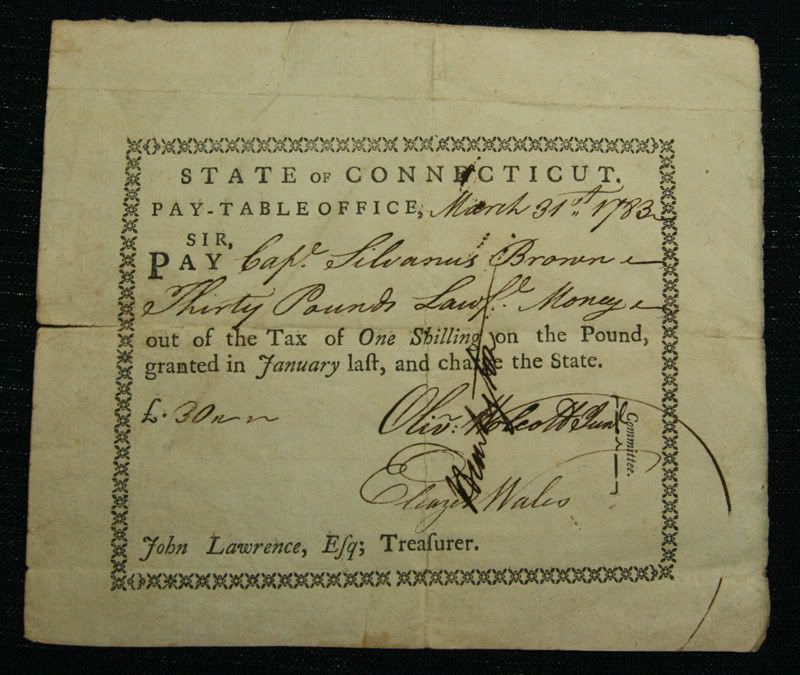 STATE OF CONNECTICUT.
PAY-TABLE OFFICE, March 31st. 1783
SIR,
PAY Capt. Silvanus Brown
Thirty Pounds Lawf.l Money
out of the Tax of One Shilling on the Pound,
granted in January laſt, and charge the State.
£.30
Oliv: Wolcott Jun
Committee.
Eleazer Wales
John Lawrence, Eſq; Treaſurer.